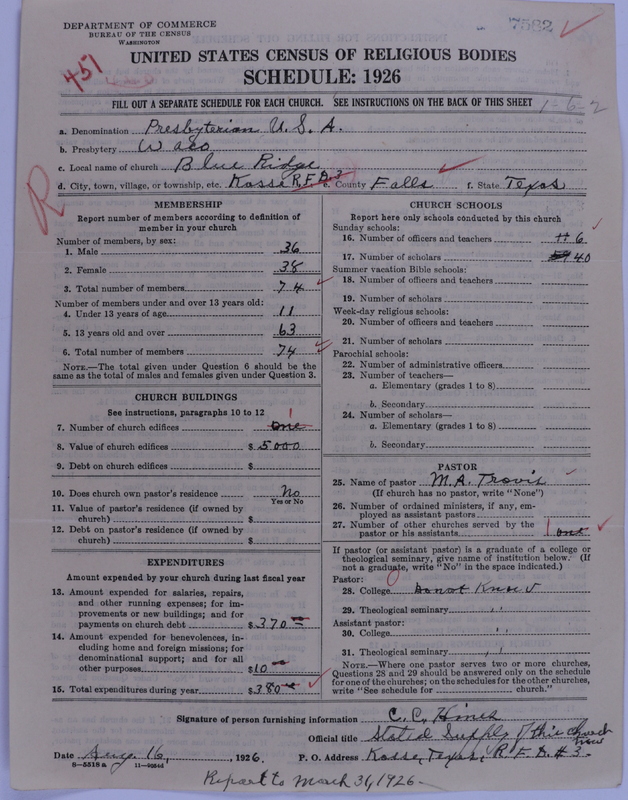 DEPARTMENT OF COMMERCE
BUREAU OF THE CENSUS
WASHINGTON
7582
451
UNITED STATES CENSUS OF RELIGIOUS BODIES
SCHEDULE: 1926
FILL OUT A SEPARATE SCHEDULE FOR EACH CHURCH. SEE INSTRUCTIONS ON THE BACK OF THIS SHEET
1-6-2
a. Denomination Presbyterian U. S. A.
b. Presbytery Waco
c. Local name of church Blue Ridge
d. City, town, village, or township, etc. Kosse R.F.D. 3 e. County Falls f. State Texas
R
MEMBERSHIP
Report number of members according to definition of
member in your church
Number of members, by sex:
1. Male 36
2. Female 38
3. Total number of members 74
Number of members under and over 13 years old:
4. Under 13 years of age 11
5. 13 years old and over 63
6. Total number of members 74
NOTE.—The total given under Question 6 should be
same as the total of males and females given under Question 3.
CHURCH BUILDINGS
See instructions, paragraphs 10 to 12
7. Number of church edifices one 1
8. Value of church edifices $ 5000
9. Debt on church edifices $
10. Does church own pastor's residence No
Yes or No
11. Value of pastor's residence (if owned by
church) $
12. Debt on pastor's residence (if owned by
church) $
EXPENDITURES
Amount expended by your church during last fiscal year
13. Amount expended for salaries, repairs,
and other running expenses; for im-
provements or new buildings; and for
payments on church debt $ 370
14. Amount expended for benevolences, in-
cluding home and foreign missions; for
denominational support; and for all
other purposes $ 10
15. Total expenditures during year $ 380
CHURCH SCHOOLS
Report here only schools conducted by this church
Sunday schools:
16. Number of officers and teachers 6
17. Number of scholars 40
Summer vacation Bible schools:
18. Number of officers and teachers
19. Number of scholars
Week-day religious schools:
20. Number of officers and teachers
21. Number of scholars
Parochial schools:
22. Number of administrative officers
23. Number of teachers—
a. Elementary (grades 1 to 8)
b. Secondary
24. Number of scholars—
a. Elementary (grades 1 to 8)
b. Secondary
PASTOR
25. Name of pastor M. A. Travis
(If church has no pastor, write "None")
26. Number of ordained ministers, if any, em-
ployed as assistant pastors
27. Number of other churches served by the
pastor or his assistants 1 one
If pastor (or assistant pastor) is a graduate of a college or
theological seminary, give name of institution below. (If
not a graduate, write "No" in the space indicated.)
Pastor:
28. College Do not Know
29. Theological seminary " "
Assistant pastor:
30. College " "
31. Theological seminary " "
NOTE.—Where one pastor serves two or more churches,
Questions 28 and 29 should be answered only on the schedule
for one of the churches; on the schedules for the other churches
write "See schedule for church."
Signature of person furnishing information C. C. Hines
Official title Stated Supply of this church now
Date Aug. 16, 1926. P. O. Address Kosse, Texas, R.F.D. # 3.
8-5518a
Report to March 31, 1926.